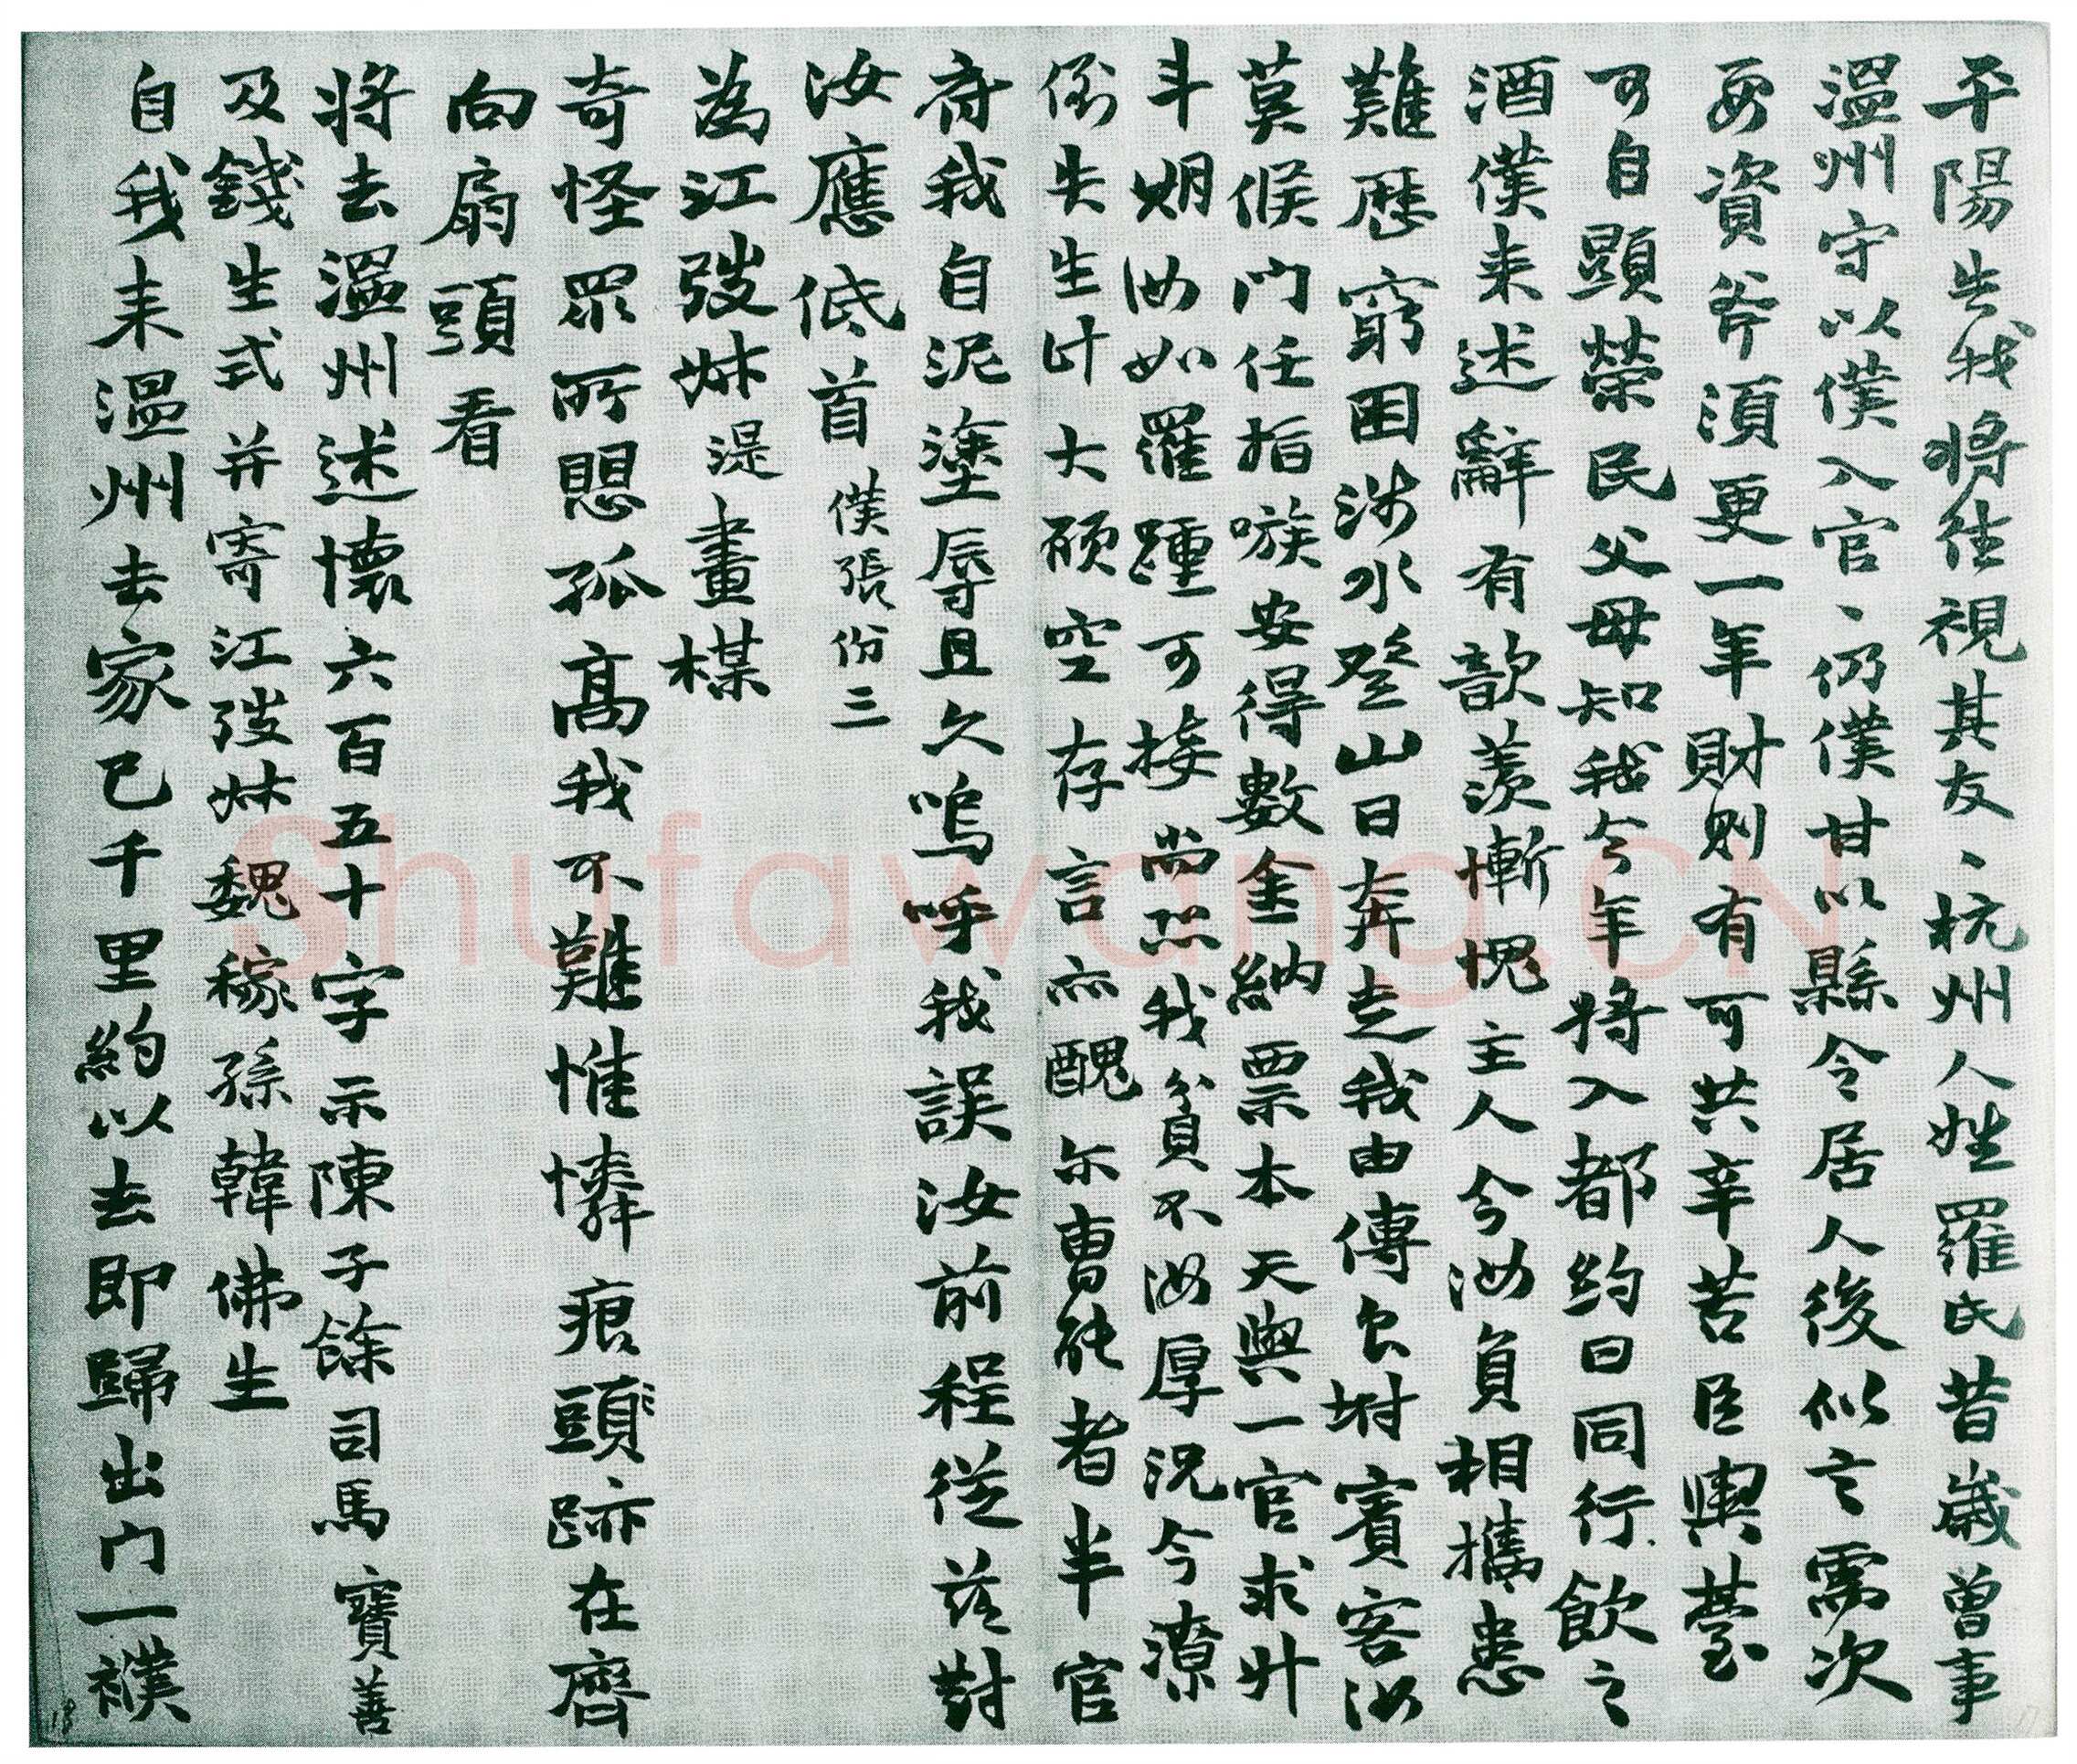 平陽告我將往視其友、杭州人姓羅氏昔歲曾事
溫州守以僕入官、仍僕甘以縣令居人後似言需次
要資斧須更一年財則有可共辛苦臣輿薹
可自顯榮民父母知我今年將入都約曰同行飲之
酒僕來述辭有歆羨慚愧主人今汝負相攜患
難歷窮困涉水登山日奔走我由傳食坿賓客汝
莫候門任指嗾安得數金納票本天與一官求升
斗烱汝如羅踵可接尚恐我貧不汝厚況今潦
倒失生計大碩空存言亦醜爾曹能者半官
府我自泥塗辱且久嗚呼我誤汝前程從茲對
汝應低首 僕張份三
為江弢叔湜畫楳
奇怪眾所思孤高我不難惟憐痕頭跡在齊
向扇頭看
將去溫州述懷六百五十字示陳子餘司馬寶善
及錢生式并寄江弢叔魏稼孫韓佛生
自我來溫州去家已千里約以去即歸出門一襆
Shufawang.CN
18
17